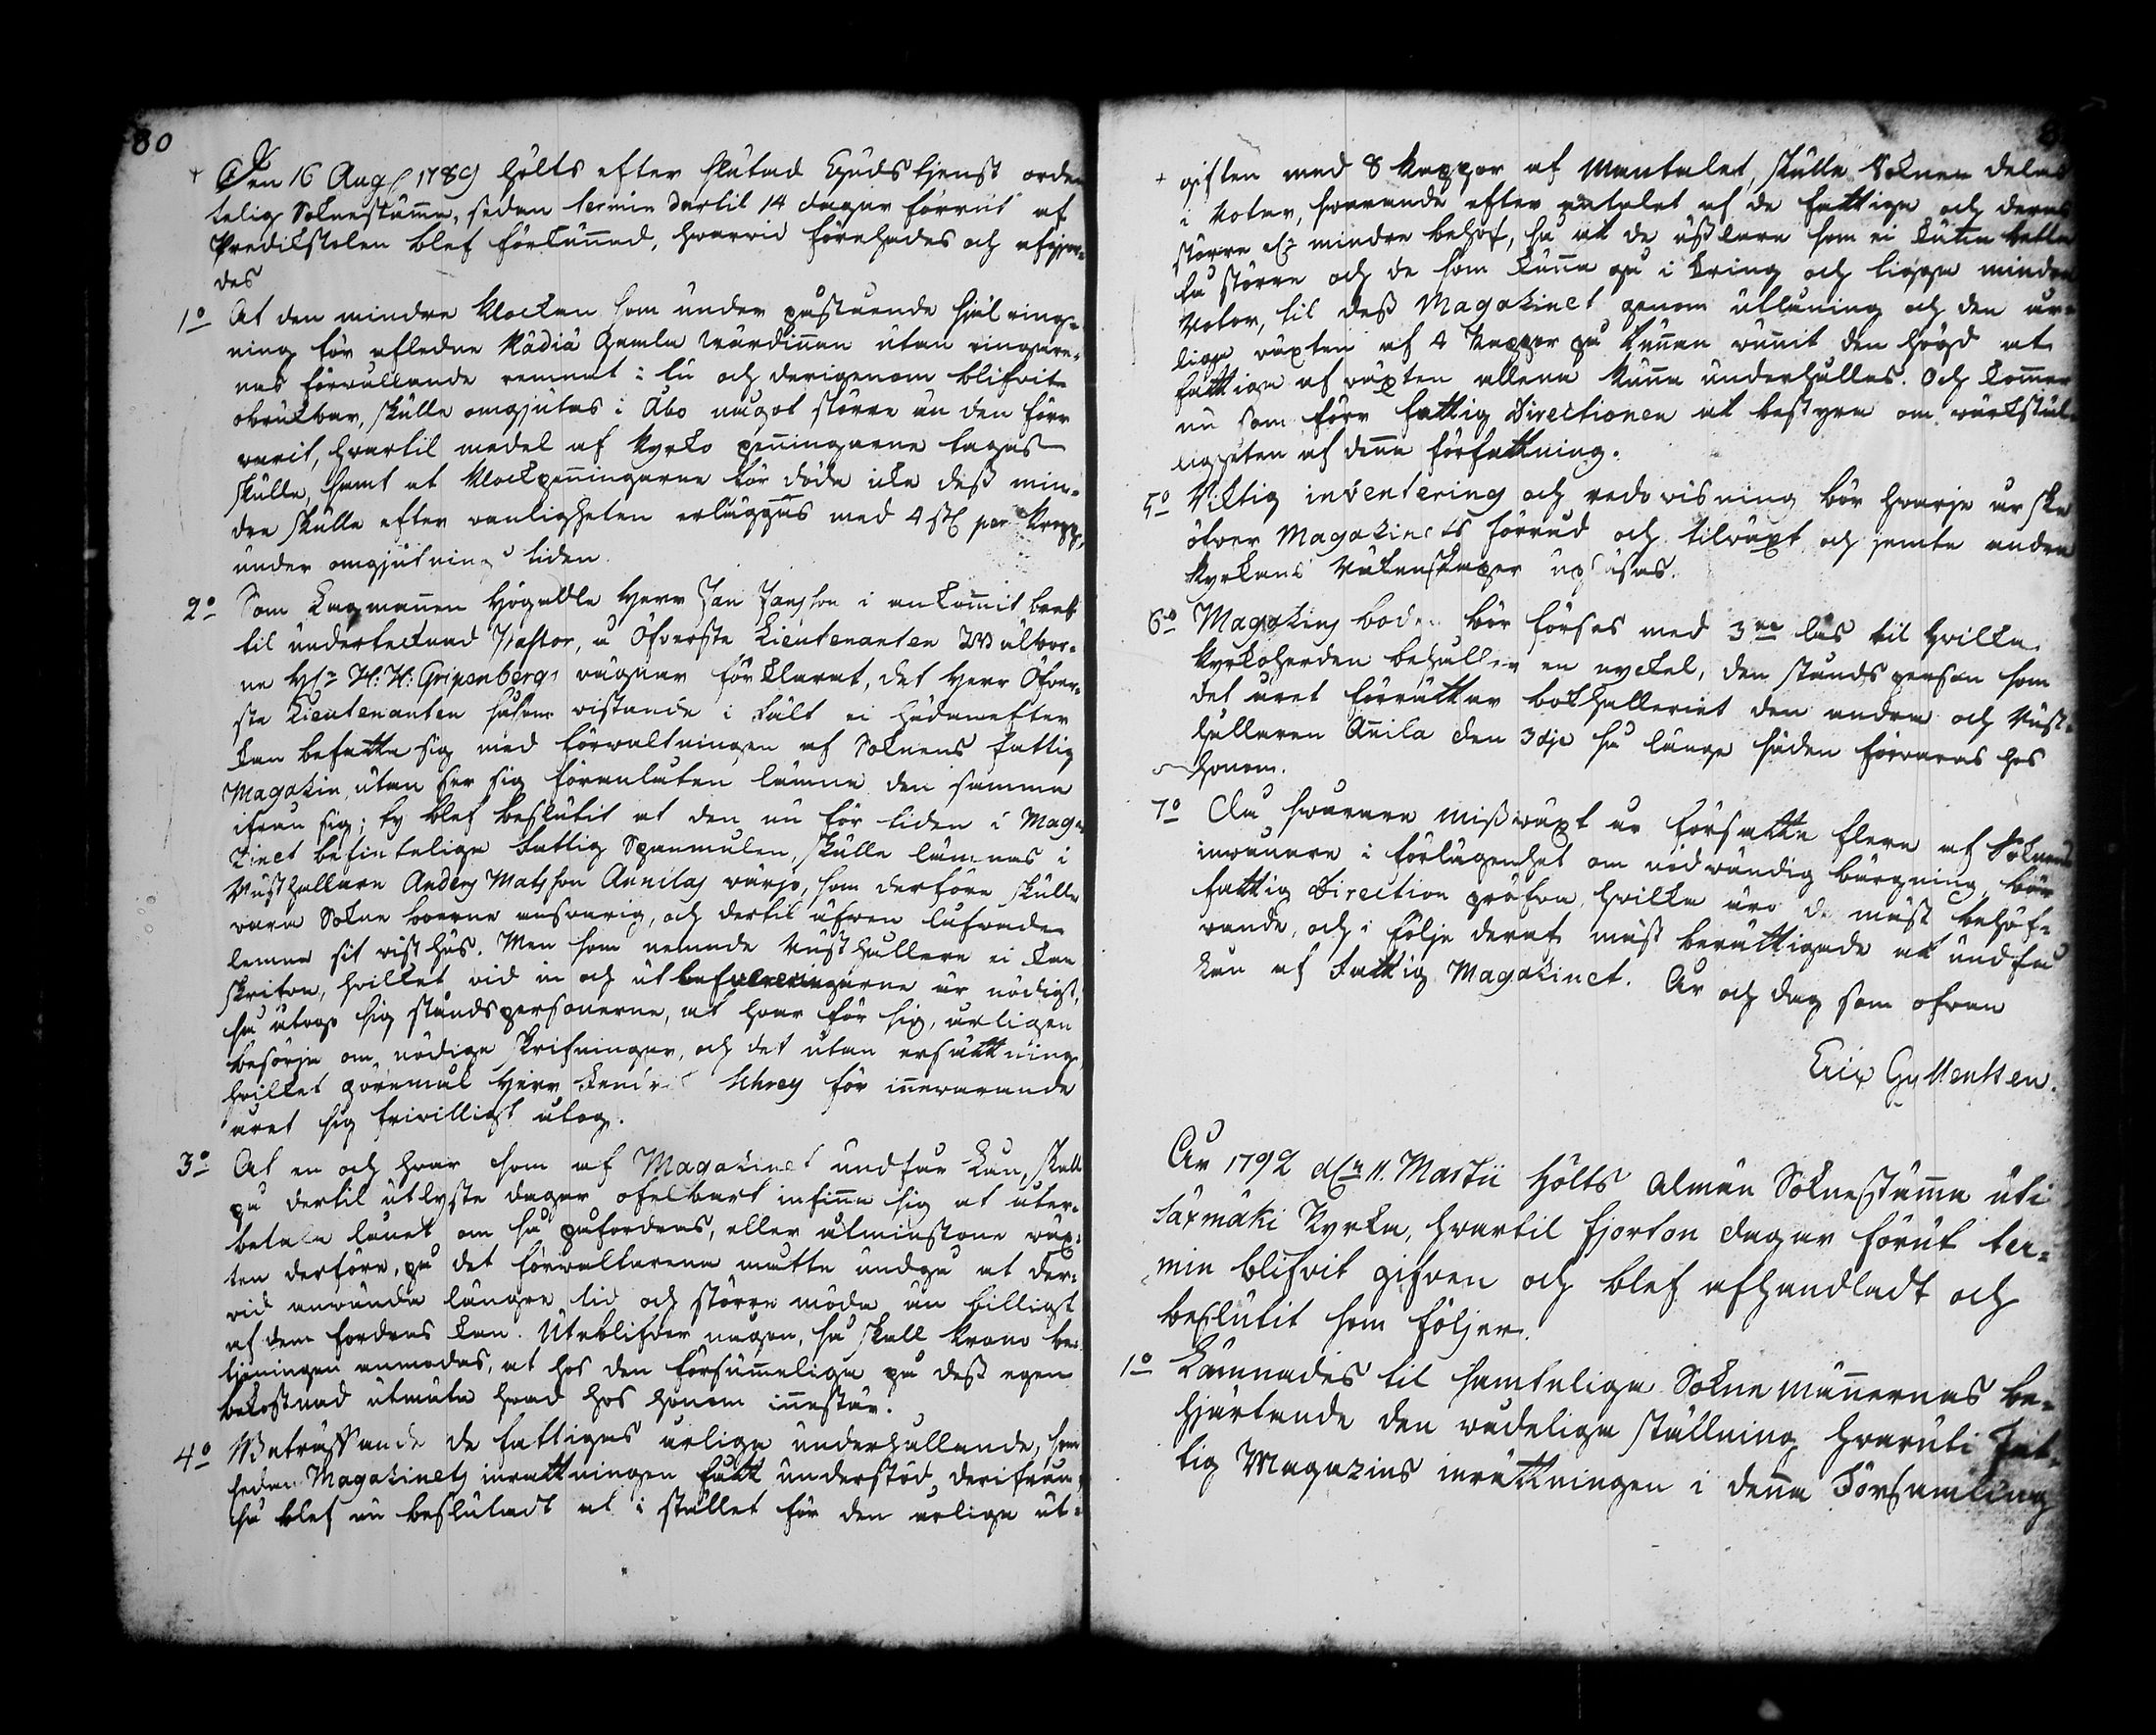 80
Den 16 Aug. 1789 hölts efter slutad Gudstjenst orden
telig Soknestämma, sedan termin dertil 14 dagar förrut af
Predikstolen blef förkunnad, hvarvid förehades och afgjor-
des
1o At den mindre klockan som under påstående själ ring-
ning för afledne Kådiä Gamla wärdinnan utan ringare-
nas förvållande remnat i tu och derigenom blifvit
obrukbar, skulle omgjutas i Åbo något större än den förr
varit, hvartil medel af kyrko penningarne tagas
skulle, samt at klockpenningarne för döda icke dess min-
dre skulle efter vanligheten erläggas med 4 sk. per kropp,
under omgjutnings tiden.
2o Som Lagmannen Högädle Herr Jan Jansson i ankommit bref
til undertecknad Pastor, å Öfverste Lieutenanten Wälbor-
ne Hr H: H: Gripenbergs vägnar förklarat, det Herr Öfver-
ste Lieutenanten såsom vistande i fält ei hädanefter
kan befatta sig med förvaltningen af Soknens fattig
Magazin, utan ser sig föranlåten lämna den samma
ifrån sig; ty blef beslutit at den nu för tiden i Maga
zinet befinteliga fattig Spanmålen, skulle lämnas i
Rusthållaren Anders Matsson Annilas värjo, som derföre skulle
vara Sokne boerne ansvarig, och dertil äfven lofvade
lemna sit visthus. Men som nemnde Rusthållare ei kan
skrifva, hvilket vid in och utlefvereringarne är nödigt,
så åtogo sig ståndspersonerne, at hvar för sig, årligen
besörja om nödiga skrifningar, och det utan ersättning
hvilket göremål Herr Schrey för innevarande
året sig frivilligt åtog.
3o At en och hvar som af Magazinet undfår Lån, skall
på dertil utlyste dagar ofelbart infinna sig at åter-
betala lånet om så påfordras, eller åtminstone väx-
ten derföre, på det förvaltarena måtte undgå at der-
vid använda längre tid och större möda än billigt
af dem fordras kan. Uteblifver någon, så skall krono be-
tjeningen anmodas, at hos den försummeliga på dess egen
bekostnad utmäta hvad hos honom innestår.
4o Beträffande de fattigas årliga underhållande, som
sedan Magazinets inrättningen fått understöd derifrån,
så blef nu beslutadt at i stället för den årliga ut-
giften med 8 kappor af Mantalet, skulle Soknen delas
i Rotar, svarande efter antalet af de fattiga och deras
större eller mindre behof, så at de uslare som ei kunna betla
få större och de som kunna gå i kring och tigga mindre
Rotar, til dess Magazinet genom utlåning och den år-
liga växten af 4 kappar på Tunnan vunnit den högd at
fattiga af växten allena kunna underhållas. Och kommer
nu som förr fattig Directionen at bestyra om värkstäl-
ligheten af denna författning.
5o Riktig inventering och redovisning bör hvarje år ske
öfver Magazinets förråd och tilväxt och jemte andra
kyrkans Räkenskaper upläsas.
6o Magazins boden bör förses med 3ne lås til hvilka
kyrkoherden behåller en nyckel, den stånds person som
det året förrättar bokhålleriet den andra och Rust-
hållaren Anila den 3dje så länge säden förvaras hos
honom.
7o Då svårare missväxt år försätta flera af Soknens
invånare i förlägenhet om nödvändig bärgning, bör
fattig Direction pröfva, hvilka äro de mäst behöf-
vande, och i följe deraf mäst berättigade at undfå
Lån af Fattig Magazinet. År och dag som ofvan
Eric Gyllensten.
År 1792 d. 11. Martii hölts almän Soknestämma uti
Säxmäki kyrka, hvartil fjorton dagar förut ter-
min blifvit gifven och blef afhandladt och
beslutit som följer.
1o Lämnades til samtelige Sokne männernas be-
hjärtande den vådeliga ställning hvaruti Fat-
tig Magazins inrättningen i denna Församling